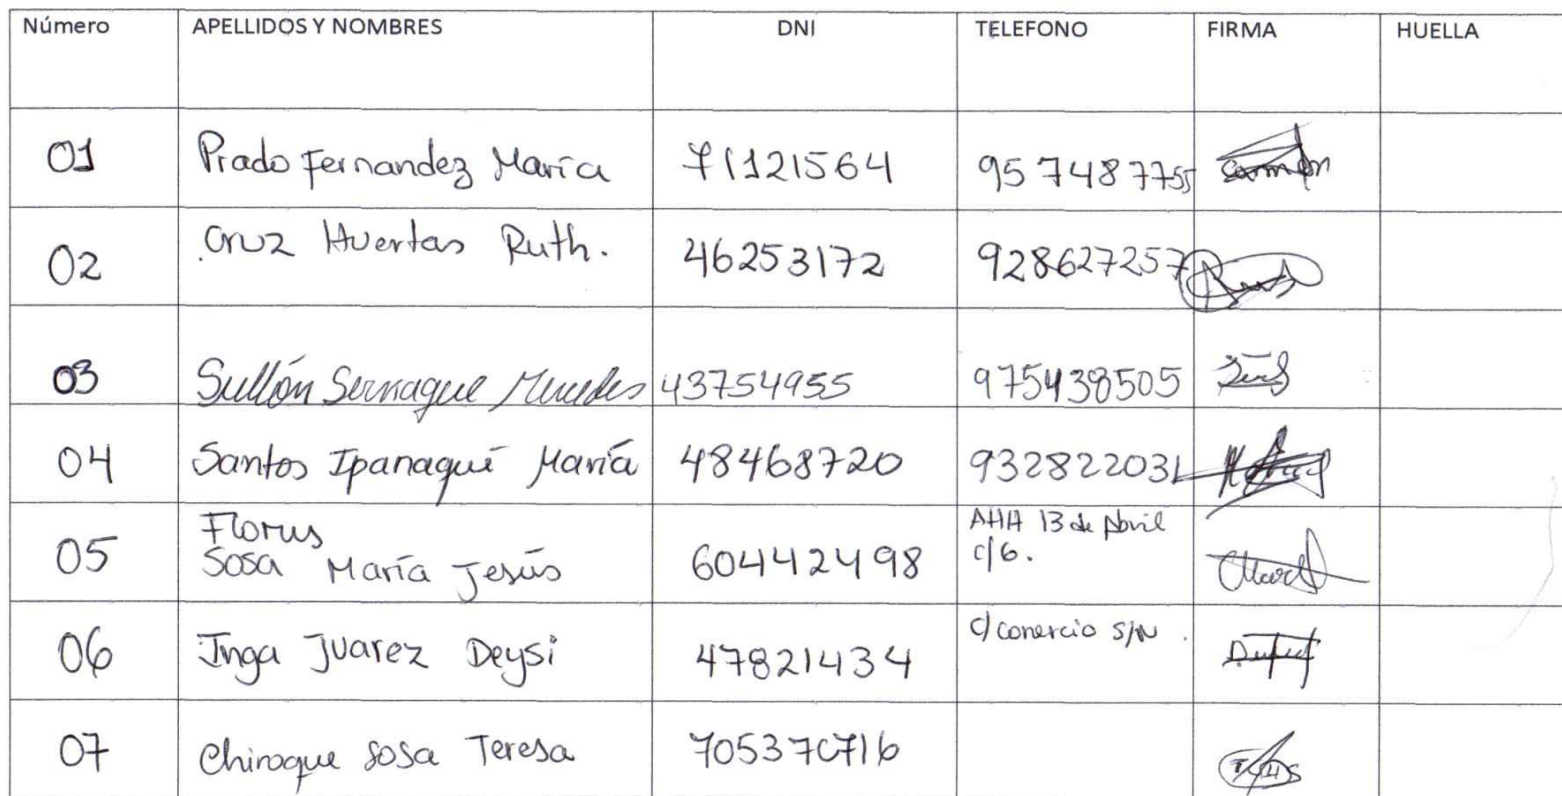 Número APELLIDOS Y NOMBRES DNI TELEFONO FIRMA HUELLA
01 Prado Fernandez María 71121564 957487755
02 Cruz Huertas Ruth. 46253172 928627257
03 Sullón Sernaque Mercedes 43754955 975438505
04 Santos Ipanaqué María 48468720 932822031
Florus AHH 13 de Abril
05 Sosa María Jesús 60442498 c/6.
06 Inga Juarez Deysi 47821434 c/ conercio S/N.
07 Chiroque Sosa Teresa